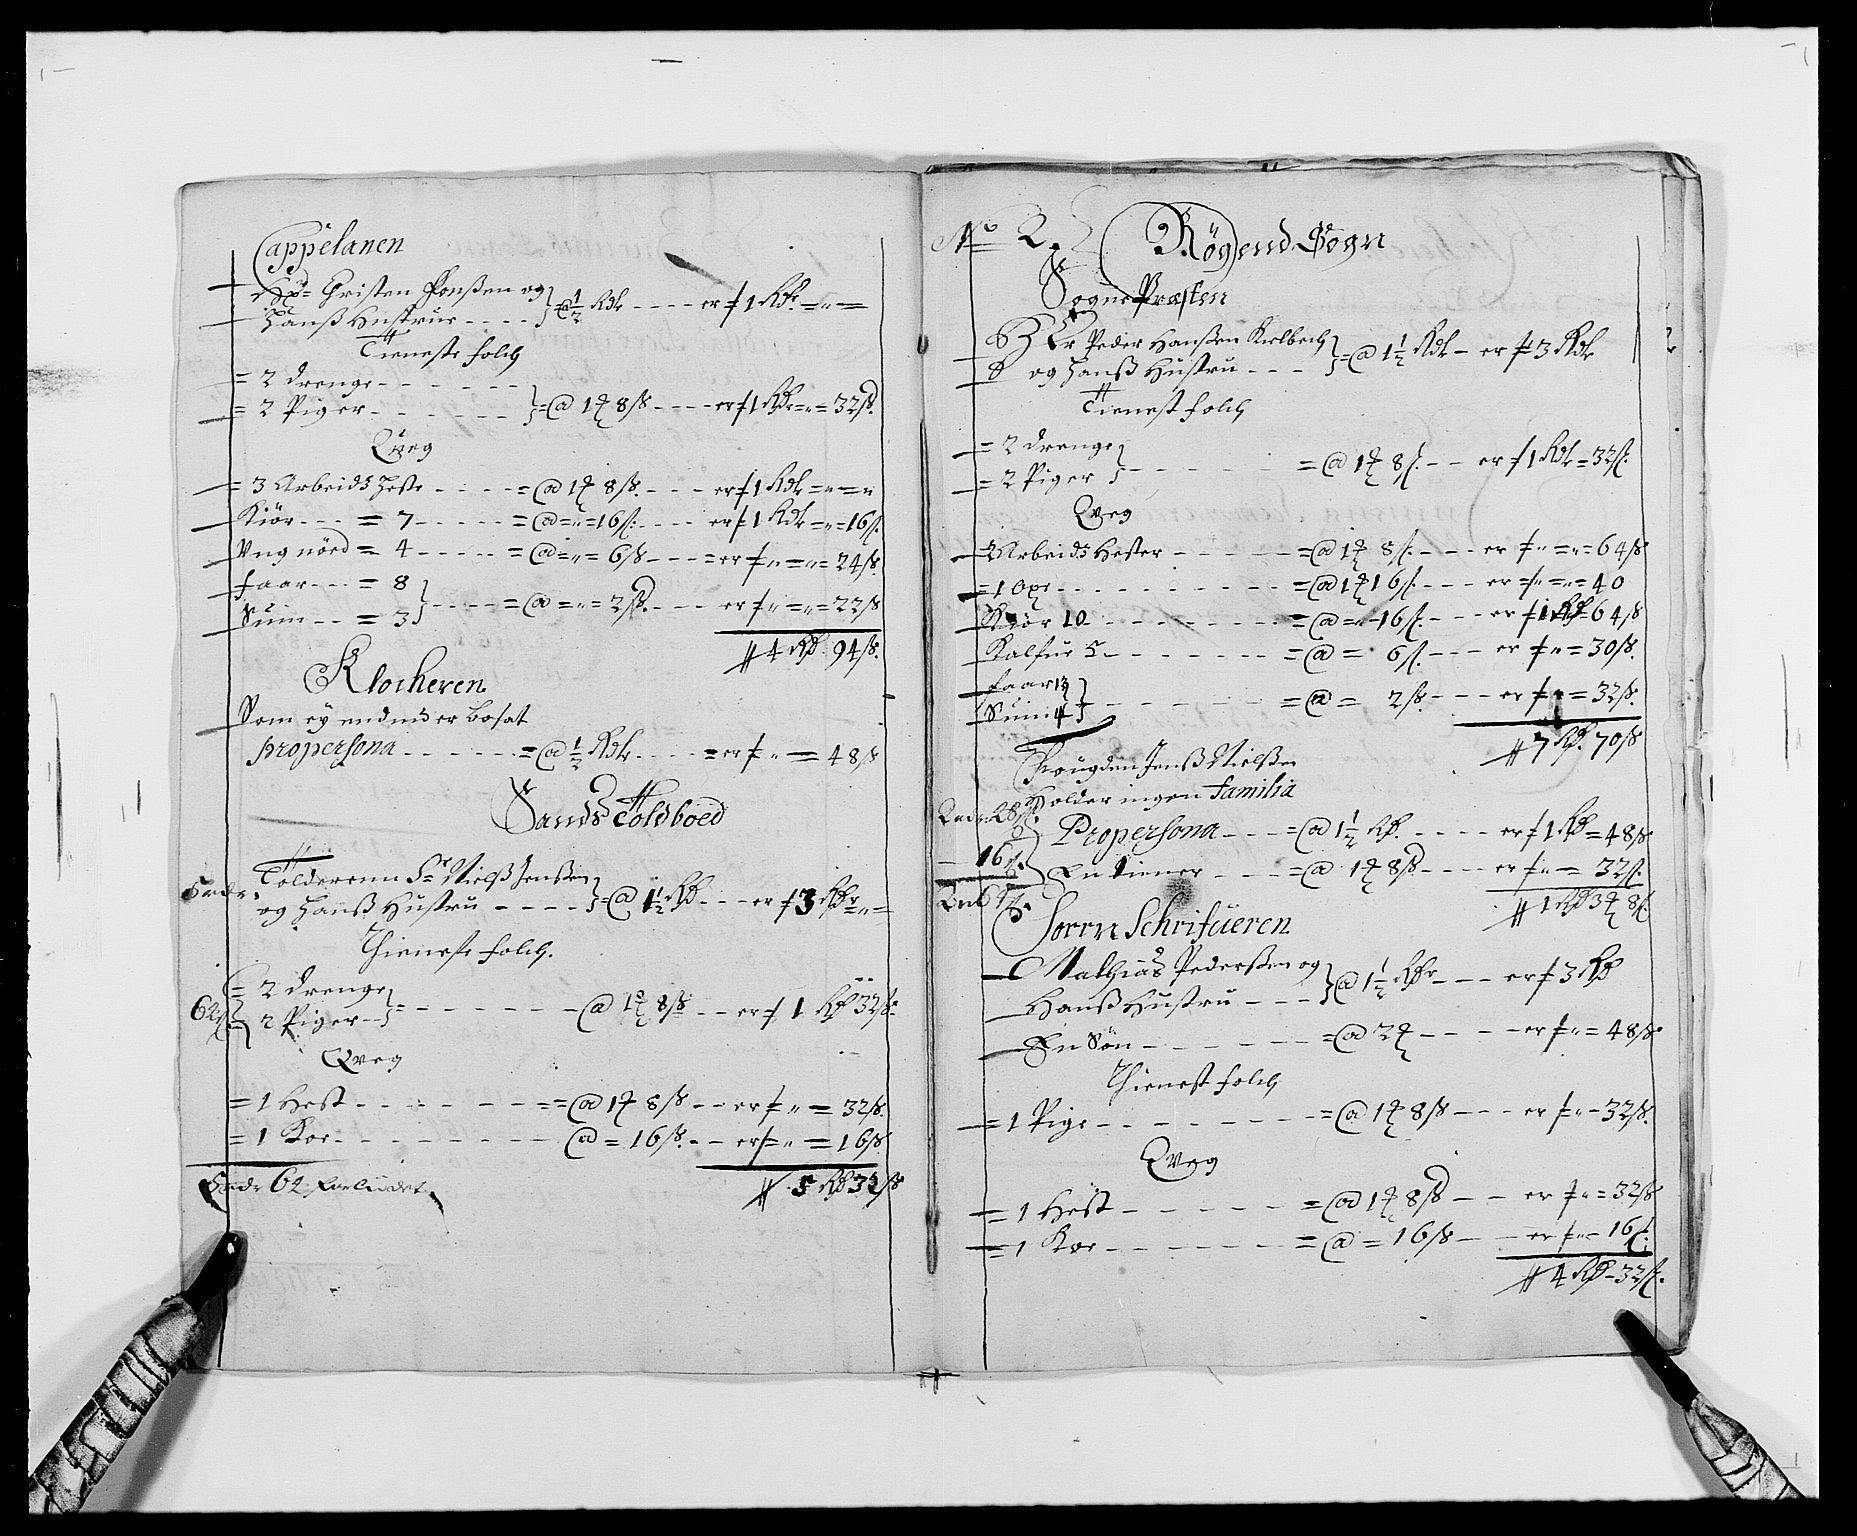 Cappelanen
Hr Christen Honßen og
Hanß Hustrue - - - - } = @ ½ Rdr - - - - er # 1 Rdr = „ =
Tieneste folch
= 2 drenge - - - - - -
= 2 Piger - - - - - - } = @ 1 ⸱ 8 ß - - - er # 1 Rdr = „ = 32 ß.
Qveg
= 3 Arbeids heste - - - - = @ 1 ⸱ 8 ß. - - - er # 1 Rdr = „ = „
Kiör - - - = 7 - - - - - = @ = „ = 16 ß: - - - er # 1 Rdr = „ = 16 ß.
Ung nöed = 4 - - - - - = @ = „ = 6 ß - - - = er # „ = „ = 24 ß.
faar - - - = 8
Suin - - = 3 } - - - - = @ = „ = 2 ß. - - - er # „ = „ = 22 ß
# 4 Rdr 94 ß.
Klocheren
Som ey endnu er bosat
propersona - - - - - - = @ ½ Rdr - - - - = er # „ = 48 ß
Sands Toldboed
Tolderenn Sr Nielß Jenßen
og Hanß Hustru - - - - } = @ 1½ Rdr - - - er # 3 Rdr = „ =
Thieneste folch.
= 2 drenge
= 2 Piger - - } = - - - - - - @ 1 ⸱ 8 ß - - er # 1 Rdr 32 ß
Qveg
= 1 Hest - - - - - - - = = @ 1 ⸱ 8 ß - - er # „ = 32 ß.
= 1 Koe - - - - - - - - @ = 16 ß. - - er # = „ = 16 ß
62
# 5 Rdr 32 ß
No 2. Rögend Sogn
Sogne Præsten
Hr Peder Hanßen Kielbech
og Hanß Hustru - - - } = @ 1½ Rdr - er # 3 Rdr
Tienest folch
= 2 drenge
= 2 Piger } - - - - - - = @ 1 ⸱ 8 ß. - - er # 1 Rdr = 32 ß.
Qveg
2 Arbeids Hester - - - - - = @ 1 ⸱ 8 ß. - - - er # „ = „ = 64 ß
= 1 Oxe - - - - - - - - - = @ 1 ⸱ 16 ß. - - - er = # „ = „ = 40
Kiör 10 - - - - - - - - = @ = „ = 16 ß. - - - er # 1 Rdr = 64 ß
Kalfue 5 - - - - - - - = @ = 6 ß. - - - er # „ = 30 ß.
faar 12
Suin 4 } - - - - - - = @ = 2 ß. - - - er # „ = 32 ß.
# 7 Rdr. 70 ß
Fougden Jenß Nielßen
Holder ingen familia
Propersona - - - = @ 1½ Rdr. - - - - er # 1 Rdr = 48 ß
16 ß.
En tiener - - - = @ 1 ⸱ 8 ß - - - - er # „ = 32 ß.
# 1 Rdr 3 ⸱ 8 ß.
Sorrn Schrifueren
Mathias Pederßen og
Hanß Hustru - - - } @ 1½ Rdr - - - er # 3 Rdr
En Sön - - - - - - - = @ 2 ⸱ - - - - er # „ = 48 ß
Thienest folch
= 1 Pige - - - - - - - = @ 1 ⸱ 8 ß - - - er # „ = 32 ß.
Qveg
= 1 Hest - - - - - - = @ 1 ⸱ 8 ß - - er # „ = 32 ß
= 1 Koe - - - - - - = @ = 16 ß - - er # „ = 16 ß
# 4 Rdr = 32 ß.